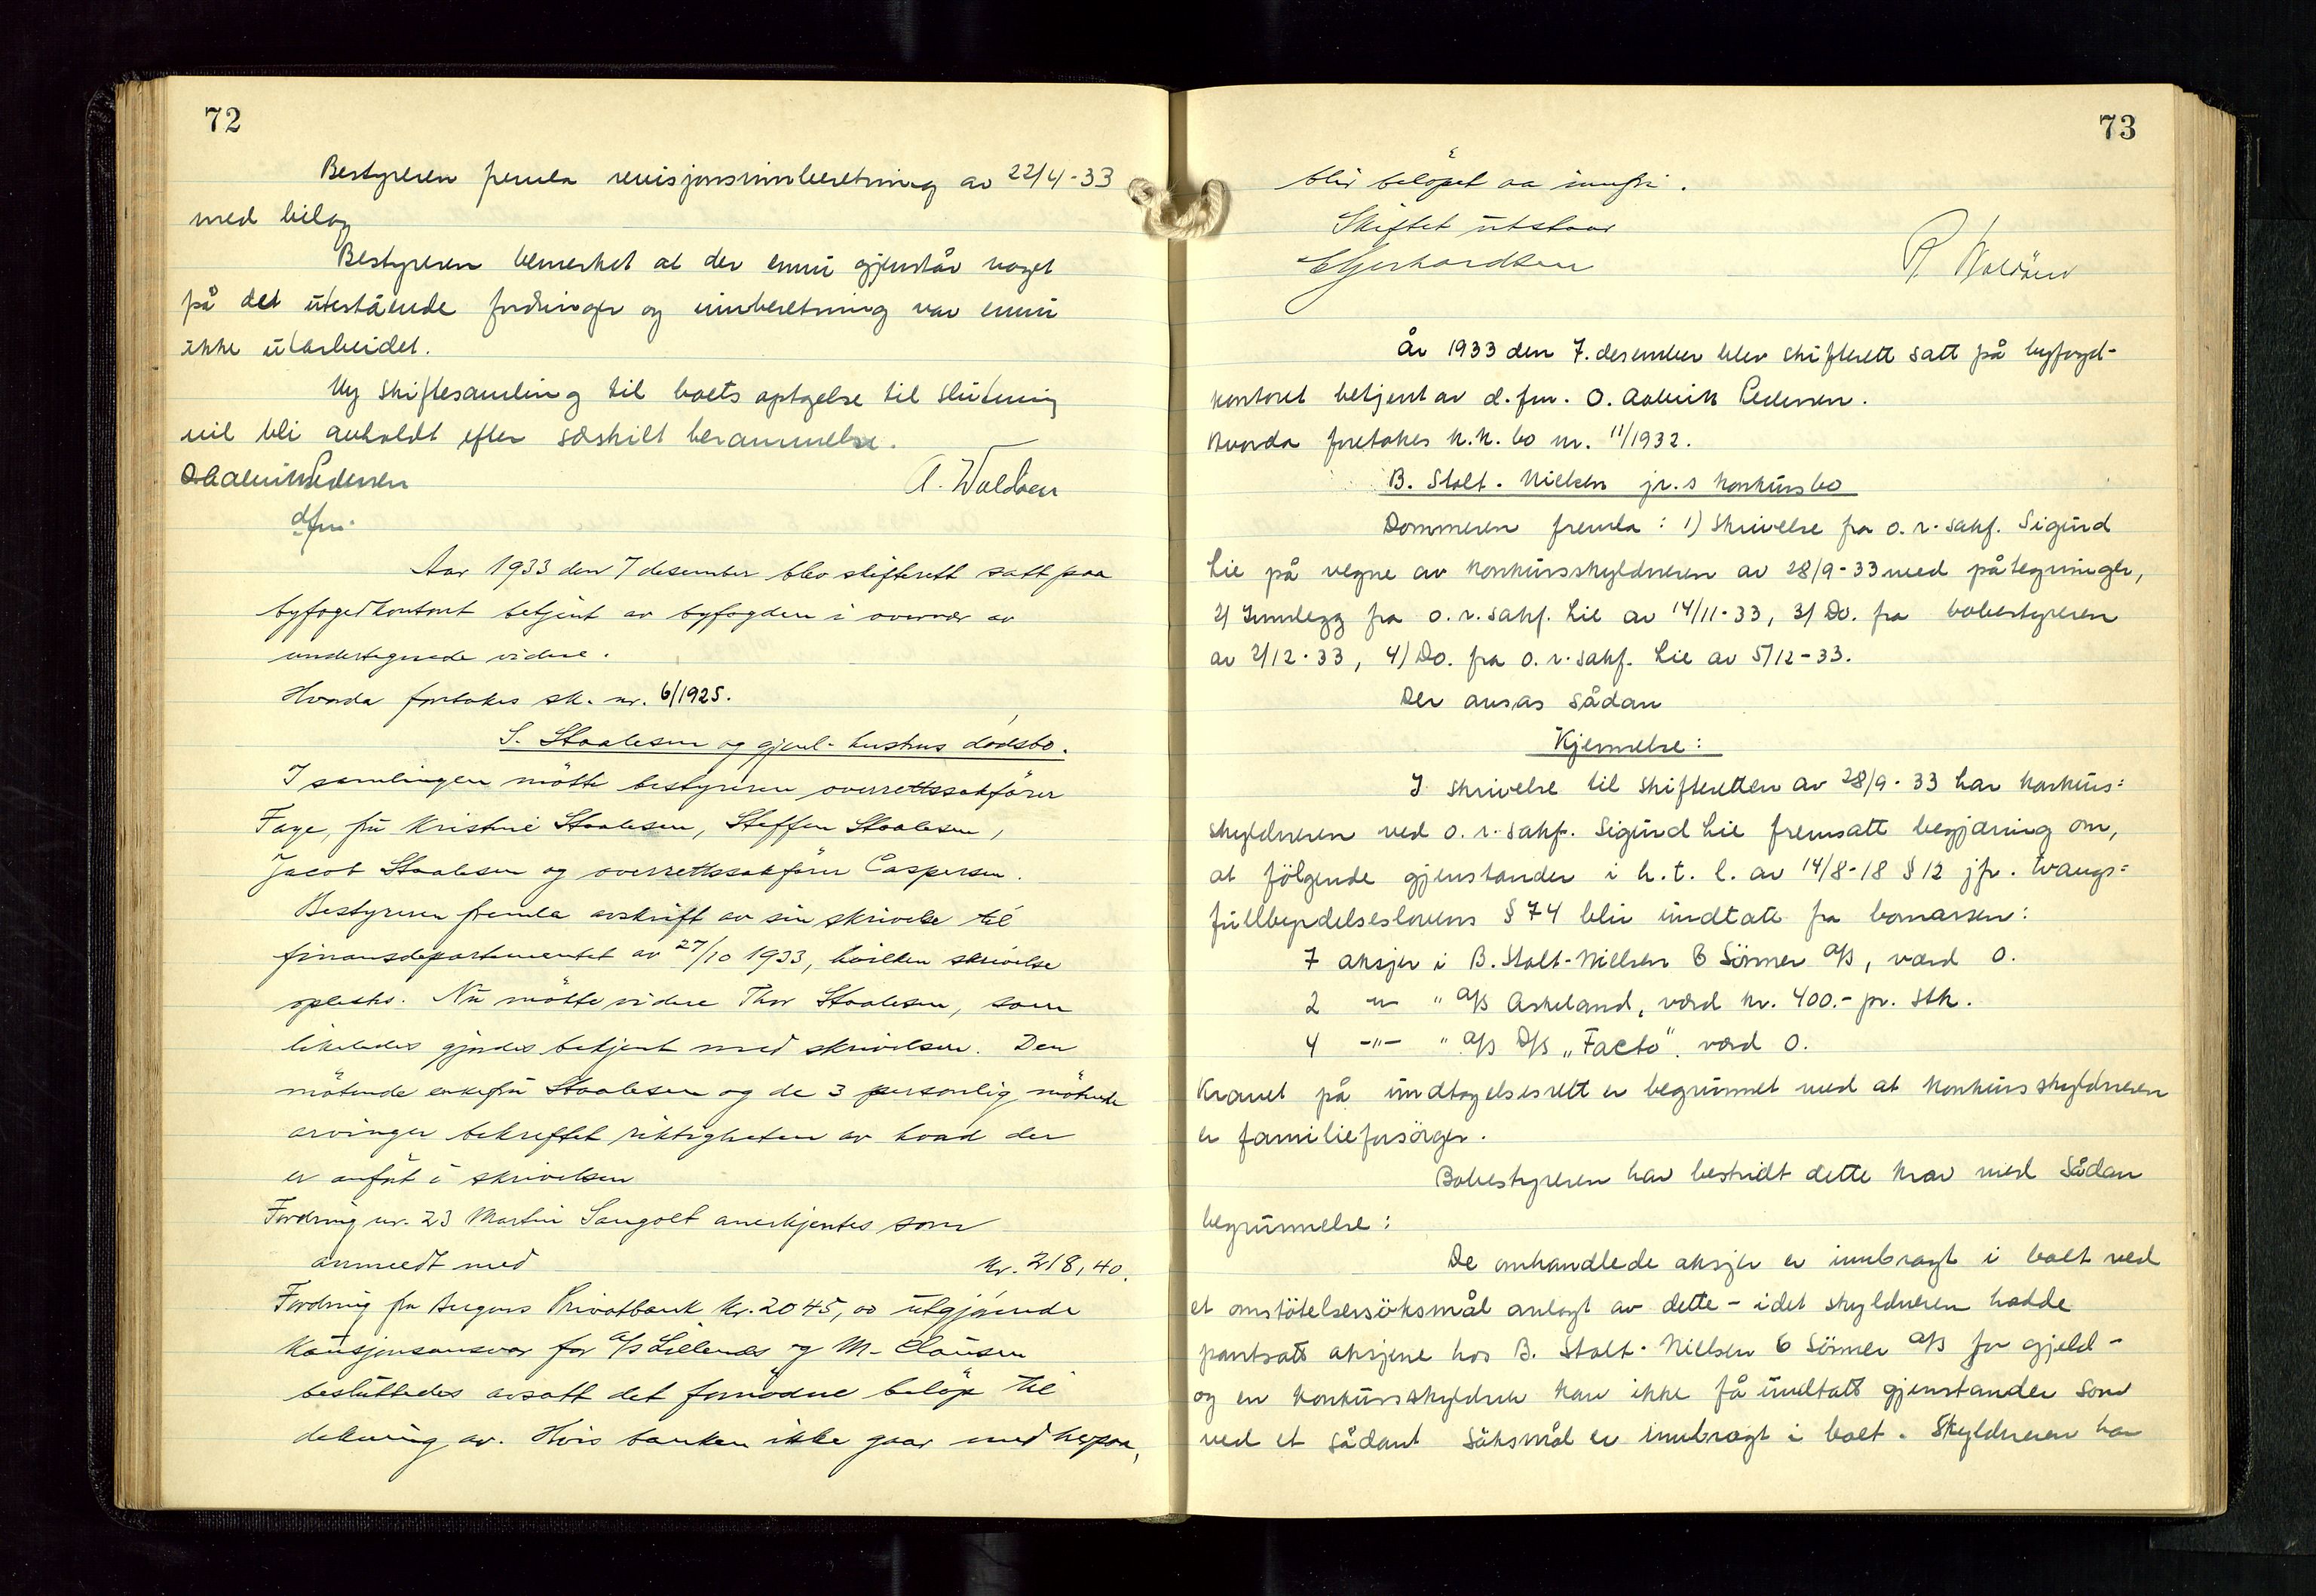 72
Bestyreren fremla revisjonsinnberetning av 22/4-33
med bilag
Bestyreren bemerket at der ennu gjenstår noget
på det utestående fordringer og innberetning var ennu
ikke utarbeidet.
Ny skiftesamling til boets optagelse til slutning
vil bli avholdt efter særskilt berammelse.
O. Aalvik Pedersen A. Waldow
dfm.
Aar 1933 den 7 desember blev skifterett satt paa
byfogedkontoret betjent av byfogden i overvær av
undertegnede vidne.
Hvorda foretokes sk. nr. 6/1925.
S. Staalesen og gjenl. hustrus dødsbo.
I samlingen mötte bestyreren overrettssakförer
Faye, fru Kristine Staalesen, Steffen Staalesen,
Jacob Staalesen og overrettssakförer Caspersen.
Bestyreren fremla avskrift av sin skrivelse til
finansdepartementet av 27/10 1933, hvilken skrivelse
oplestes. Nu mötte videre Thor Staalesen, som
likeledes gjordes bekjent med skrivelsen. Den
mötende enkefru Staalesen og de 3 personlig mötende
arvinger bekreftet riktigheten av hvad der
er anfört i skrivelsen
Fordring nr. 23 Martin Sangolt anerkjentes som
anmeldt med kr. 218,40.
Fordring fra Bergens Privatbank kr. 2045,00 utgjörende
kausjonsansvar for a/s Lillenes og M. Clausen
besluttedes avsatt det fornödne belöp til
dekning av. Hvis banken ikke gaar med herpaa,
73
blir belöpet aa innfri.
Skiftet utstaar
E Gerhardsen A. Waldow
År 1933 den 7. desember blev skifterett satt på byfogd-
kontoret betjent av d.fm. O. Aalvik Pedersen.
Hvorda foretokes k.k. bo nr. 11/1932.
B. Stolt-Nielsen jr.s konkursbo
Dommeren fremla: 1) Skrivelse fra o.r.sakf. Sigurd
Lie på vegne av konkursskyldneren av 28/9-33 med påtegninger,
2) Innlegg fra o.r.sakf. Lie av 14/11-33, 3) Do. fra bobestyreren
av 2/12-33, 4) Do. fra o.r.sakf. Lie av 5/12-33.
Der ansas sådan
Kjennelse:
I skrivelse til skifteretten av 28/9-33 har konkurs=
skyldneren ved o.r.sakf. Sigurd Lie fremsatt begjæring om,
at fölgende gjenstander i h.t. l. av 14/8-18 § 12 jfr. tvangs=
fullbyrdelseslovens § 74 blir undtatt fra bomassen:
7 aksjer i B. Stolt-Nielsen & Sönner a/s, værd 0.
2 -"- " a/s Askeland, værd kr. 400.- pr. stk.
4 -"- " a/s D/s "Facto". værd 0.
Kravet på undtagelsesrett er begrunnet med at konkursskyldneren
er familieforsörger.
Bobestyreren har bestridt dette krav med sådan
begrunnelse:
De omhandlede aksjer er innbragt i boet ved
et omstötelsessöksmål anlagt av dette - idet skyldneren hadde
pantsatt aksjene hos B. Stolt-Nielsen & Sönner a/s for gjeld -
og en konkursskyldner kan ikke få undtatt gjenstander som
ved et sådant söksmål er innbragt i boet. Skyldneren har